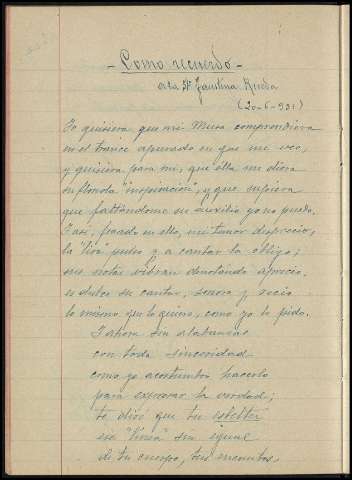 - Como recuerdo -
a la Sta Faustina Rueda
(20-6-931)
Yo quisiera que mi Musa comprendiera
en el trance apurado en que me veo,
y quisiera para mi, que ella me diera
su florida "inspiración", y que supiera
que faltándome su auxilio yo no puedo.
Y asi, fiado en ello, sin temor desprecio,
la "lira" pulso y a cantar la obligo;
sus notas vibran denotando aprecio.
es dulce su cantar, sonoro y recio
lo mismo que lo quiero, como yo le pido.
Y ahora sin alabanzas
con toda sinceridad
como yo acostumbro hacerlo
para expresar la verdad;
te diré que tu
esa "linea" sin igual
de tu cuerpo, tus encantos